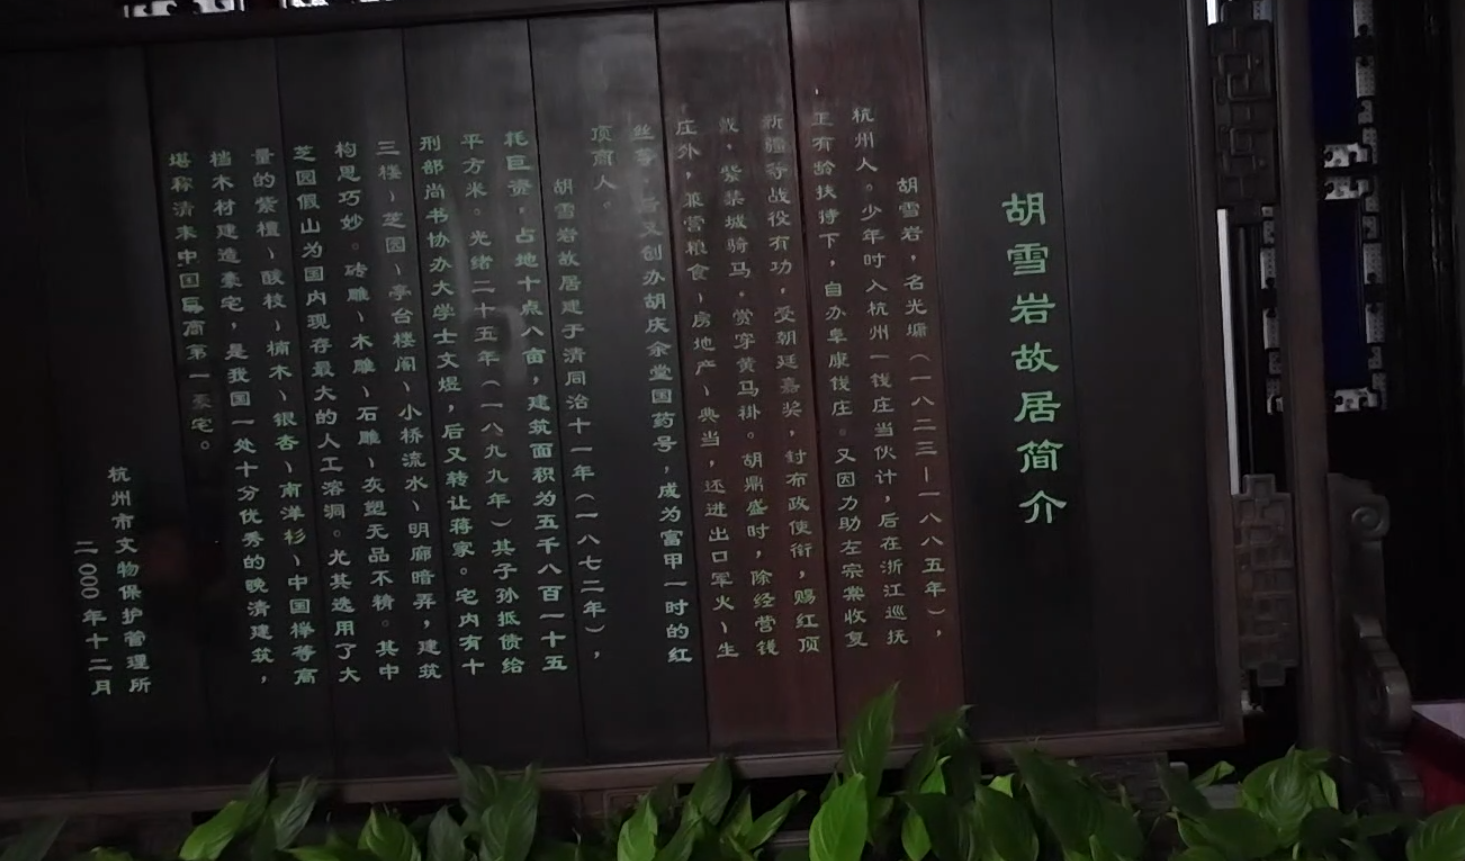 胡雪岩故居简介
胡雪岩，名光墉（一八二三—一八八五年），
杭州人。少年时入杭州一钱庄当伙计，后在浙江巡抚
王有龄扶持下，自办阜康钱庄。又因力助左宗棠收复
新疆等战役有功，受朝廷嘉奖，封布政使衔，赐红顶
戴，紫禁城骑马，赏穿黄马褂。胡鼎盛时，除经营钱
庄外，兼营粮食、房地产、典当，还进出口军火、生
丝等，后又创办胡庆余堂国药号，成为富甲一时的红
顶商人。
胡雪岩故居建于清同治十一年（一八七二年），
耗巨资，占地十点八亩，建筑面积为五千八百一十五
平方米。光绪二十五年（一八九九年）其子孙抵债给
刑部尚书协办大学士文煜，后又转让蒋家。宅内有十
三楼、芝园、亭台楼阁、小桥流水、明廊暗弄，建筑
构思巧妙。砖雕、木雕、石雕、灰塑无品不精。其中
芝园假山为国内现存最大的人工溶洞。尤其选用了大
量的紫檀、酸枝、楠木、银杏、南洋杉、中国榉等高
档木材建造豪宅，是我国一处十分优秀的晚清建筑，
堪称清末中国巨商第一豪宅。
杭州市文物保护管理所
二000年十二月